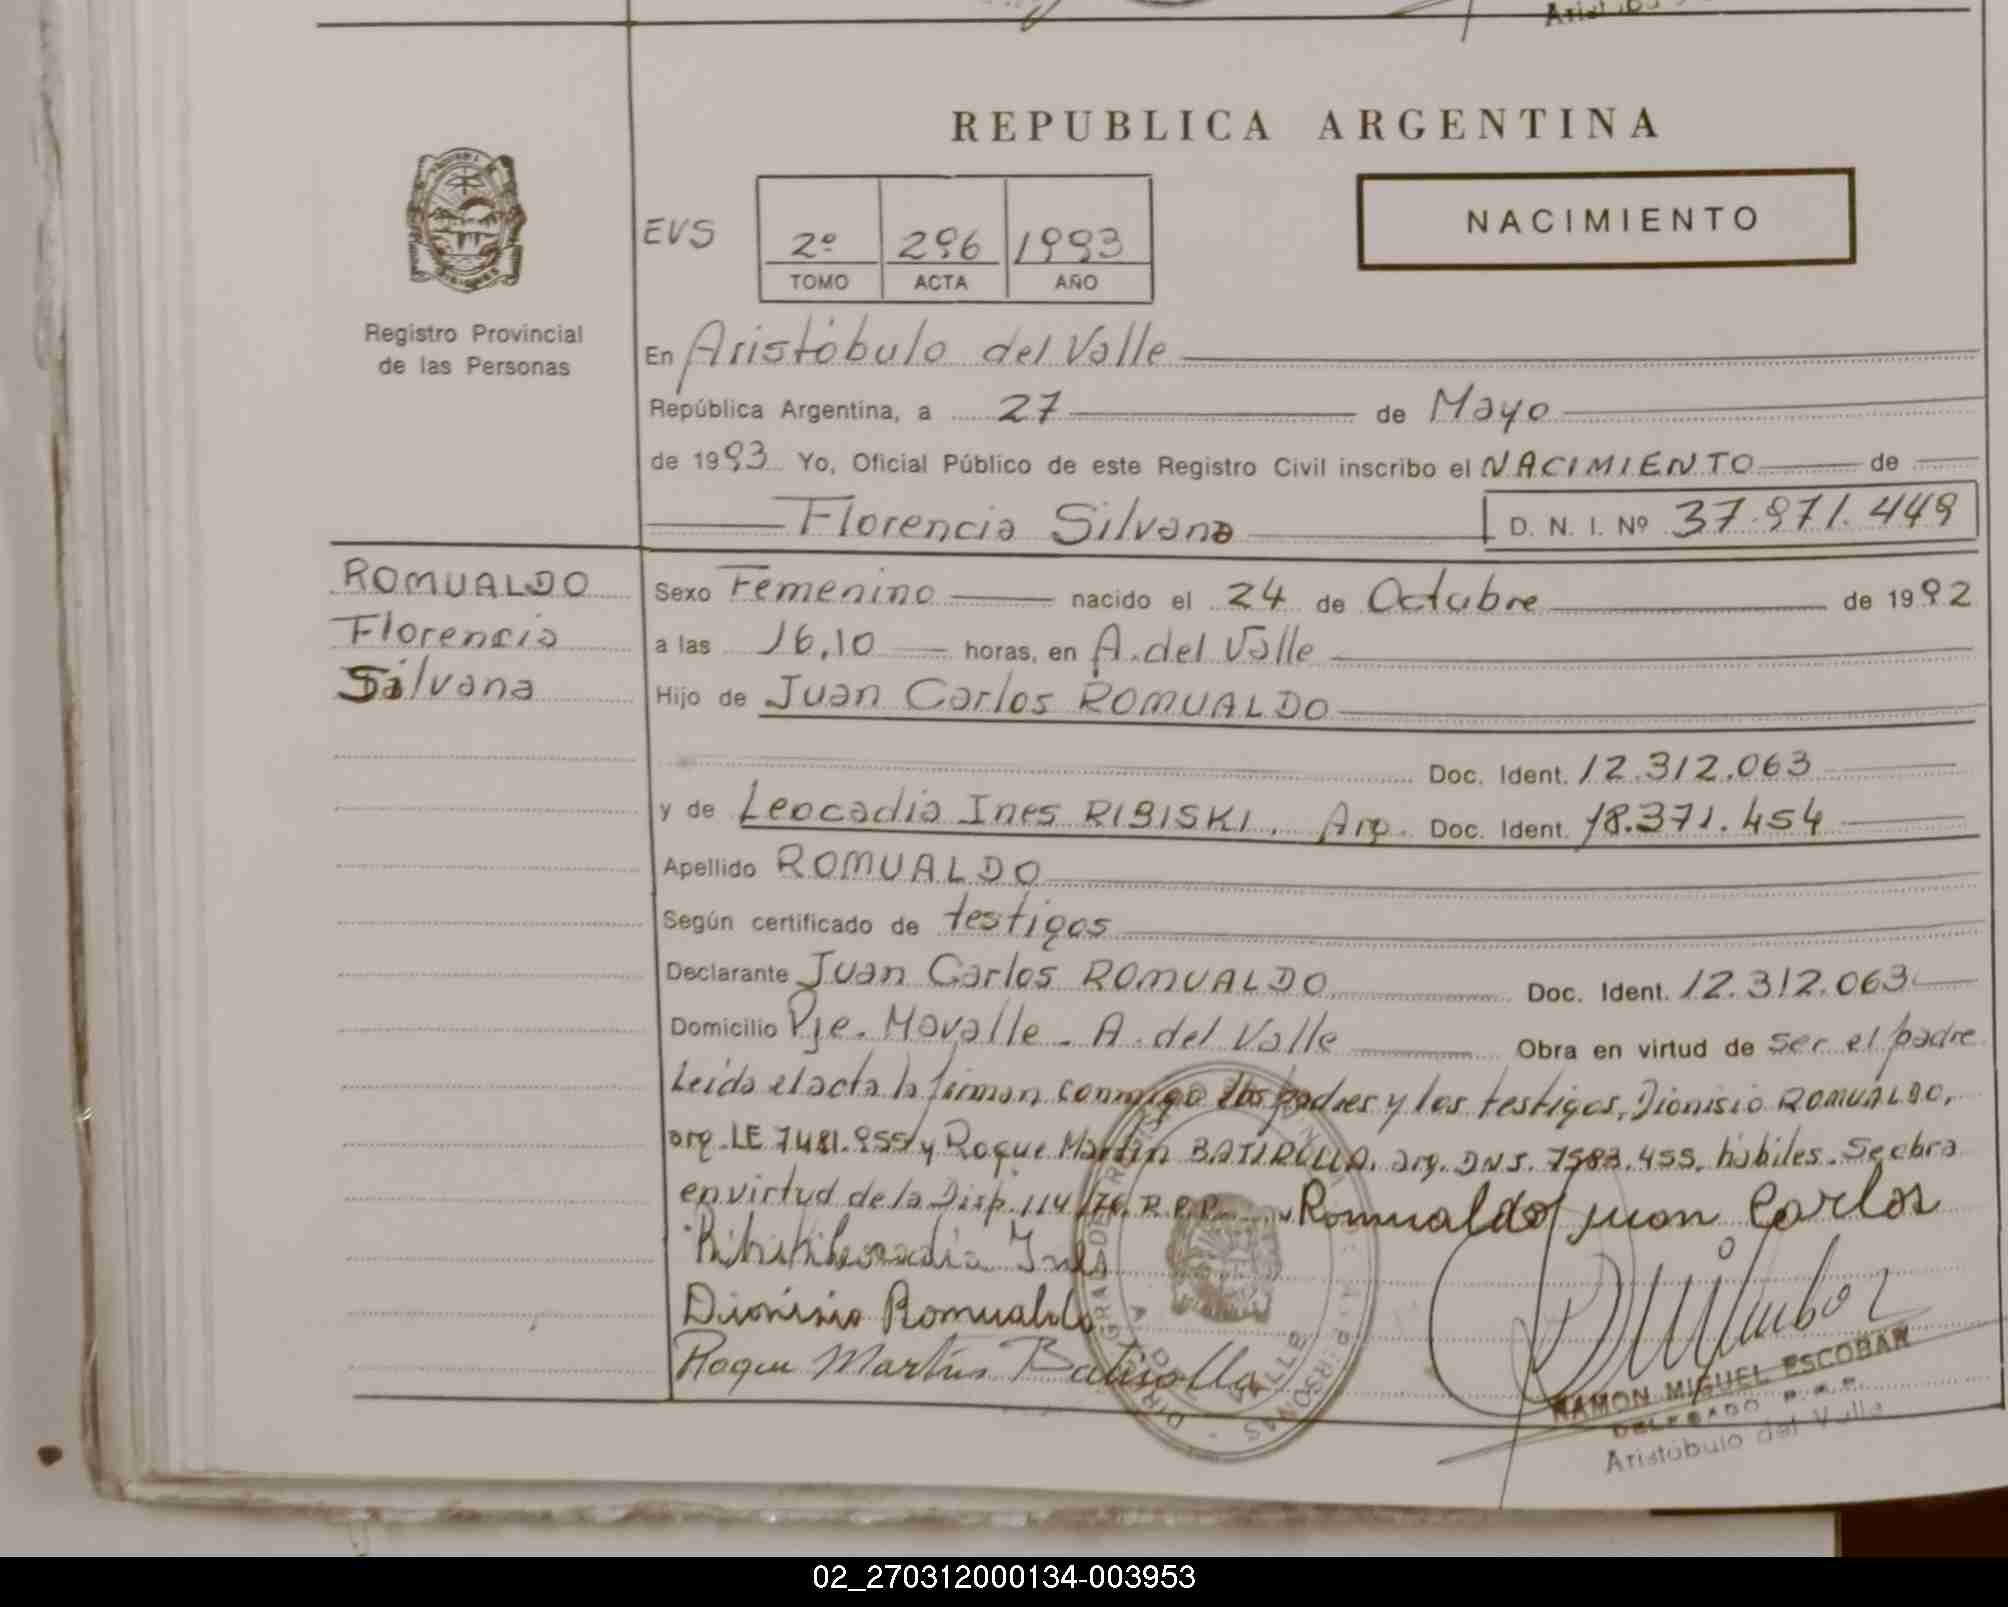 REPUBLICA ARGENTINA
NACIMIENTO
EVS
2º 296 1993
TOMO ACTA AÑO
Registro Provincial
de las Personas
En Aristóbulo del Valle
República Argentina, a 27 de Mayo
de 1993 Yo, Oficial Público de este Registro Civil inscribo el NACIMIENTO de
Florencia Silvana D. N. I. Nº 37.971.449
ROMUALDO
Florencia
Silvana
Sexo Femenino nacido el 24 de Octubre de 1992
a las 16,10 horas, en A. del Valle
Hijo de Juan Carlos ROMUALDO
Doc. Ident. 12.312.063
y de Leocadia Ines RIBISKI, Arg. Doc. Ident. 18.371.454
Apellido ROMUALDO
Según certificado de testigos
Declarante Juan Carlos ROMUALDO Doc. Ident. 12.312.063
Domicilio Pje. Mavalle - A. del Valle Obra en virtud de ser el padre
Leída el acta la firman conmigo los padres y los testigos, Dionisio ROMUALDO,
arg. LE 7481.955 y Roque Martin arg. DNI. 455, hábiles. Se obra
en virtud de la Disp. 114/76. R.P.P.
Romualdo Juan Carlos
Ines
Dionisio Romualdo
Roque Martin
RAMON MIGUEL ESCOBAR
DELEGADO R.P.P.
Aristóbulo del Valle
02_270312000134-003953